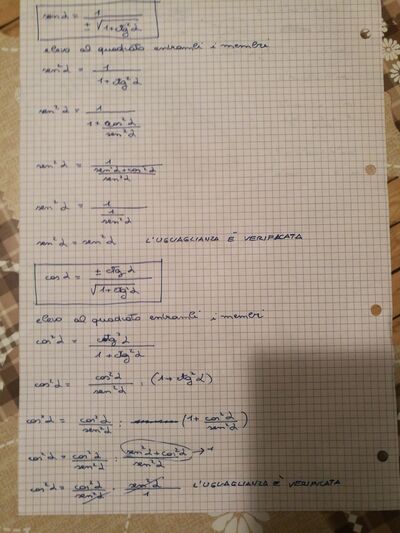 sen α = 1 / ± √(1+ctg²α)
elevo al quadrato entrambi i membri
sen²α = 1 / (1+ctg²α)
sen²α = 1 / (1 + cos²α/sen²α)
sen²α = 1 / ((sen²α+cos²α)/sen²α)
sen²α = 1 / (1/sen²α)
sen²α = sen²α L'UGUAGLIANZA È VERIFACATA
cos α = ± ctg α / √(1+ctg²α)
elevo al quadrato entrambi i membri
cos²α = ctg²α / (1+ctg²α)
cos²α = cos²α/sen²α : (1+ctg²α)
cos²α = cos²α/sen²α : (1+ cos²α/sen²α)
cos²α = cos²α/sen²α : (sen²α+cos²α)/sen²α → 1
cos²α = cos²α/sen²α · sen²α/1 L'UGUAGLIANZA È VERIFICATA